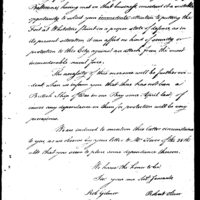 Baltimore, having out on that
opportunity to solicit your immediate attention to putting the
Fort at Whetstone Point in a proper state of defence, as in
its present situation, it can afford no kind of security or
protection to this City against an attack from the most
inconsiderable naval force.
The necessity of this measure will be further evi-
dent when we inform you that there has not been a
British Ship of War in our Bay since April last, of
course any dependence on them for protection will be very
precarious.
We are induced to mention this latter circumstance
to you as we observe in your letter to Mr. of the 28th
that you seem to place some dependence thereon.
We have the honor to be
Sir your mo. Obt. Servants
Robt Gilmor Robert Oliver